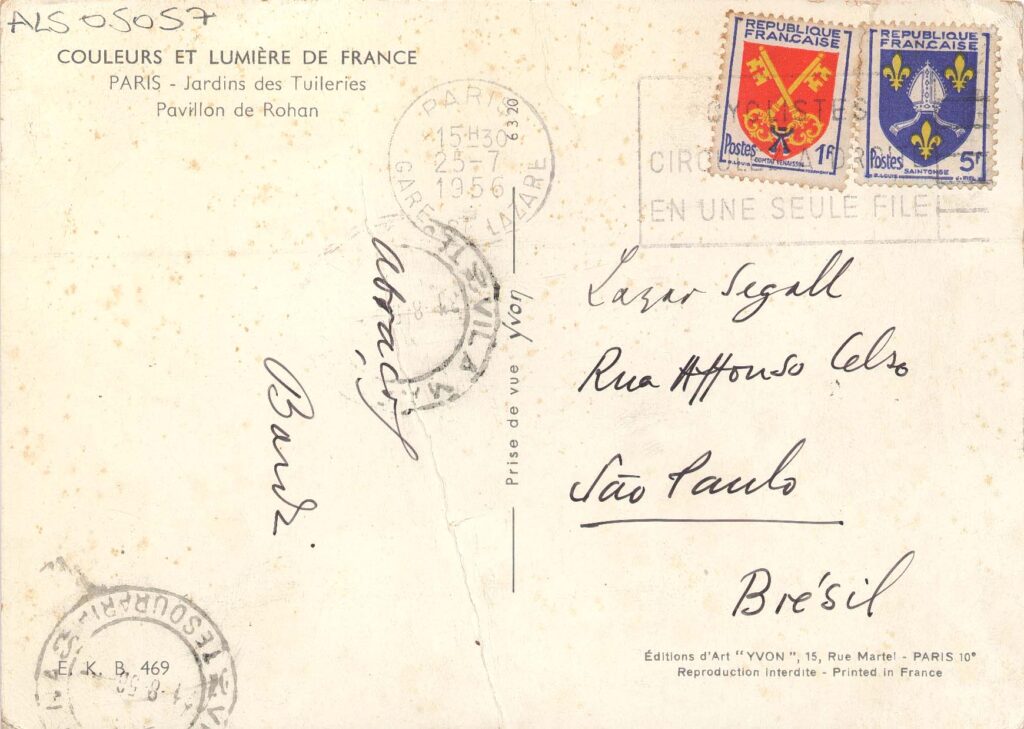 ALS 05057
COULEURS ET LUMIÈRE DE FRANCE
PARIS - Jardins des Tuileries
Pavillon de Rohan
PARIS
15H30
25-7
1956
GARE LAZARE
6320
REPUBLIQUE
FRANÇAISE
Postes 1F
COMTAT VENAISSIN
REPUBLIQUE
FRANÇAISE
Postes 5F
SAINTONGE
CYCLISTES
CIRCULEZ A DROITE
EN UNE SEULE FILE
abraços
Bardi
Prise de vue yvon
Lazar Segall
Rua Affonso Celso
São Paulo
Brésil
TESOURARIA
E. K. B. 469
Éditions d'Art "YVON", 15, Rue Martel - PARIS 10e
Reproduction interdite - Printed in France